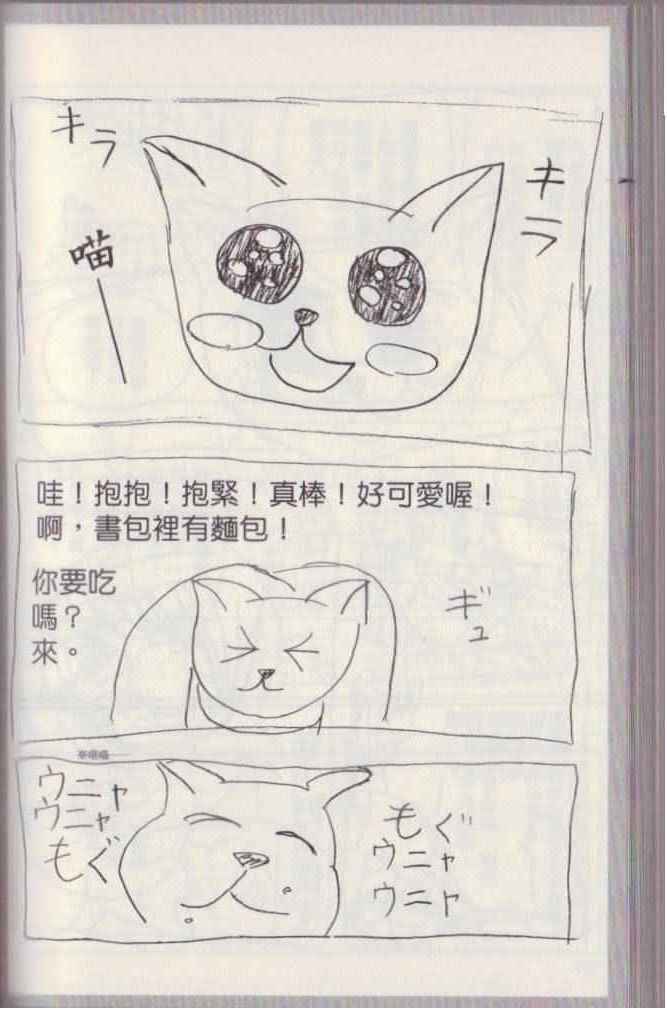 キラ
キラ
喵—
哇！抱抱！抱緊！真棒！好可愛喔！
啊，書包裡有麵包！
你要吃
嗎？
來。
ギュ
ウニャ
ウニャ
もぐ
もぐ
ウニャ
ウニャ